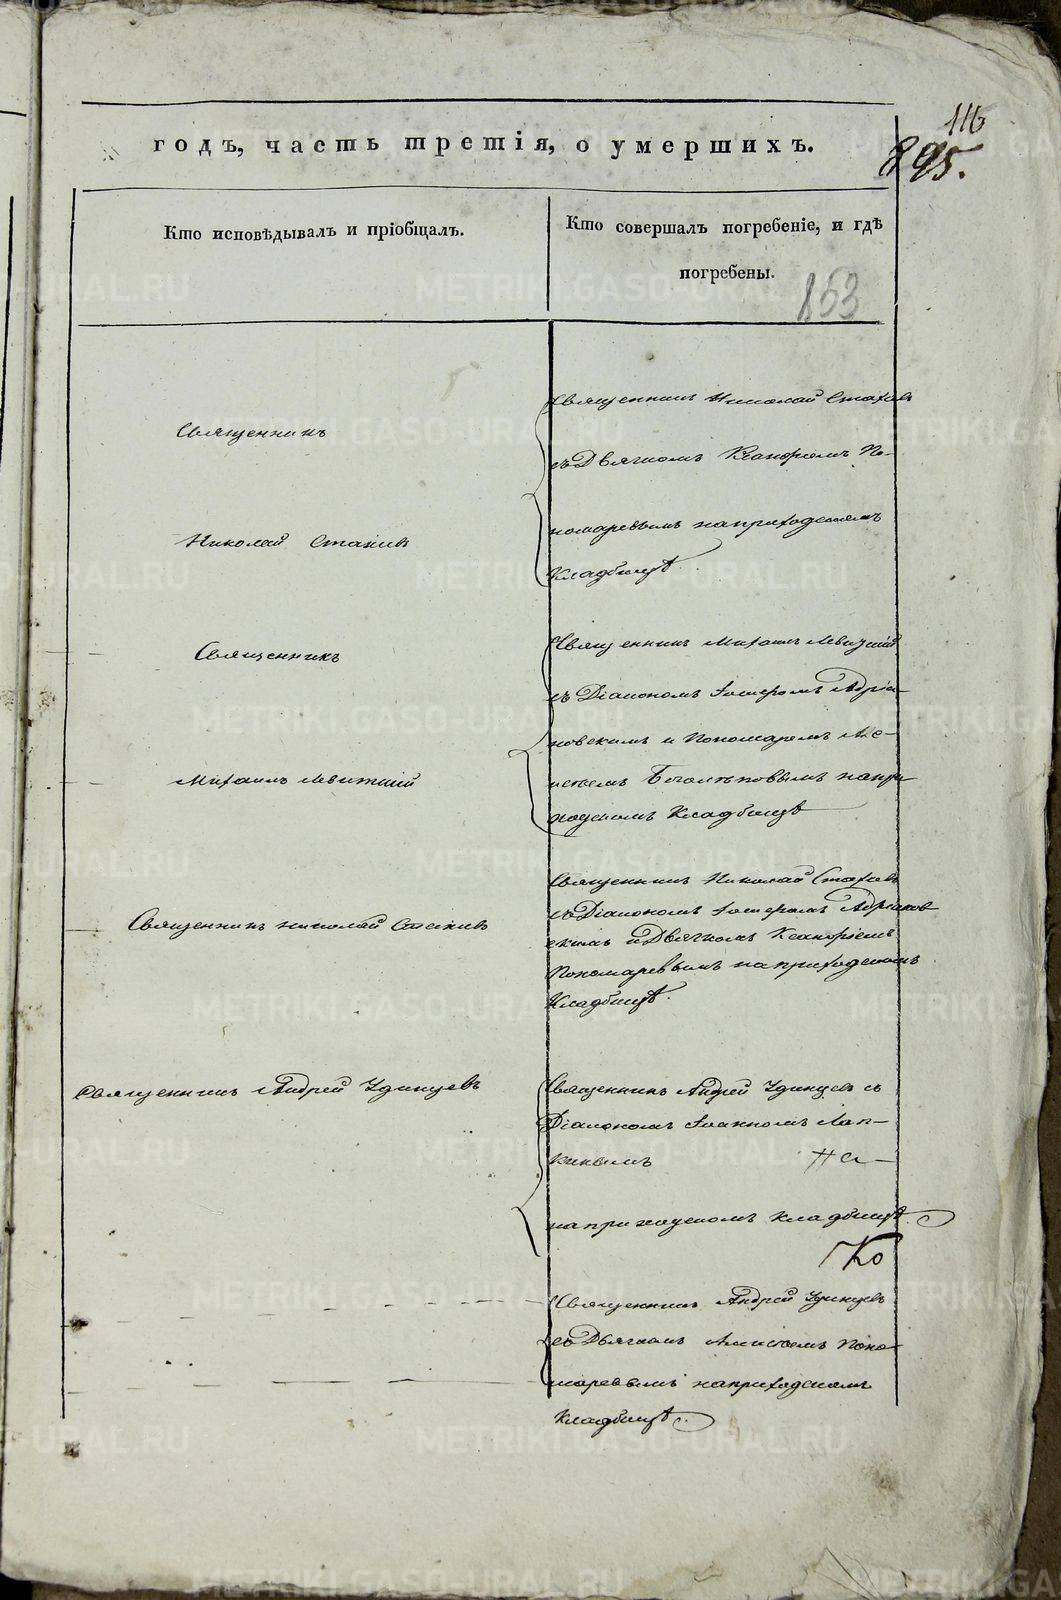 116
895.
годъ, часть третія, о умершихъ.
Кто исповѣдывалъ и пріобщалъ.
Кто совершалъ погребеніе, и гдѣ
погребены.
853
Священникъ
Николай Стахіевъ
Священникъ Николай Стахіевъ
съ Дьячкомъ По-
номаревымъ на приходскомъ
Кладбищѣ
Священникъ
Михаилъ Левитскій
Священникъ Михаилъ Левитскій
съ Діакономъ Адріа-
новскимъ и Пономаремъ Але-
на при
ходскомъ Кладбищѣ
Священникъ Николай Стахіевъ
Священникъ Николай Стахіевъ
съ Діакономъ Адріанов
скимъ и Дьячкомъ
Пономаревымъ на приходскомъ
Кладбищѣ.
Священникъ Андрей Удинцевъ
Священникъ Андрей Удинцевъ съ
Діакономъ Іоанномъ Лап-
кинымъ На-
на приходскомъ кладбищѣ.
Ко
Священникъ Андрей Удинцевъ
съ Дьячкомъ Поно-
маревымъ на приходскомъ
Кладбищѣ.
METRIKI.GASO-URAL.RU